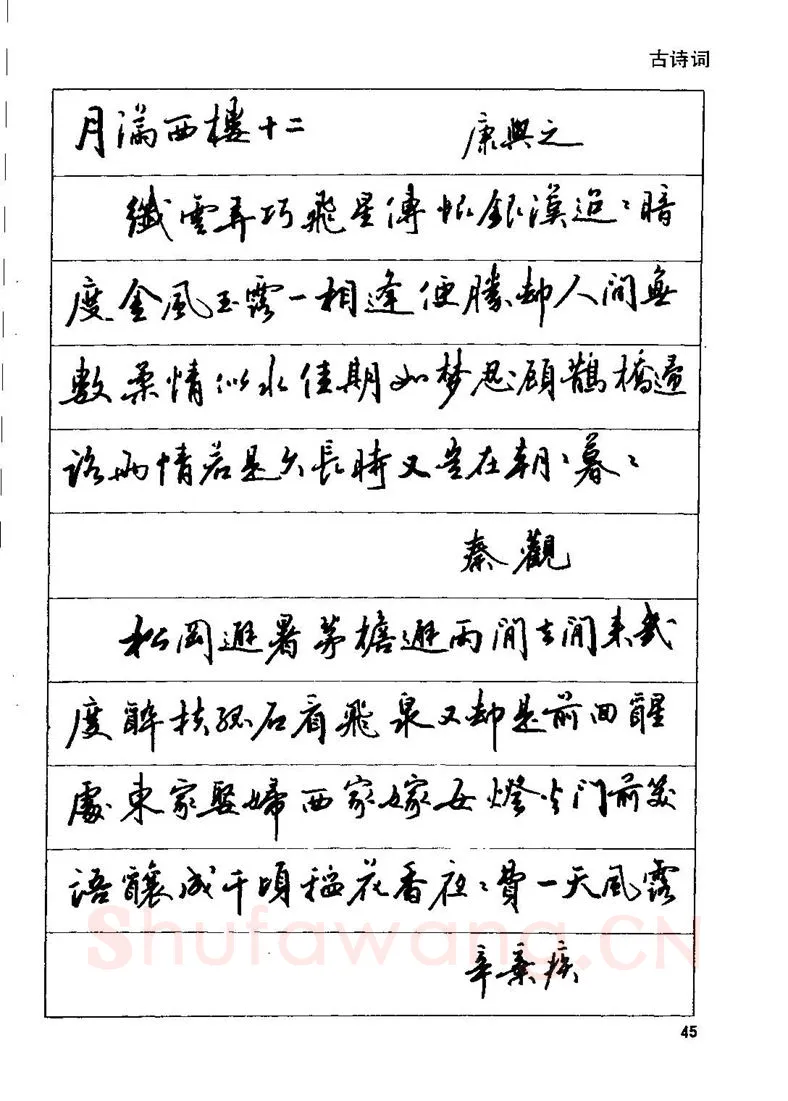 古诗词
月满西樓十二 康與之
纖雲弄巧飛星傳恨銀漢迢〻暗
度金風玉露一相逢便勝却人間無
數柔情似水佳期如梦忍顾鵲橋歸
路兩情若是久長時又豈在朝〻暮〻
秦觀
松岡避暑茅檐避雨閒去閒来幾
度醉扶孤石看飛泉又却是前回醒
處東家娶婦西家嫁女燈火门前笑
語釀成千頃稻花香夜〻費一天風露
辛棄疾
Shufawang.CN
45